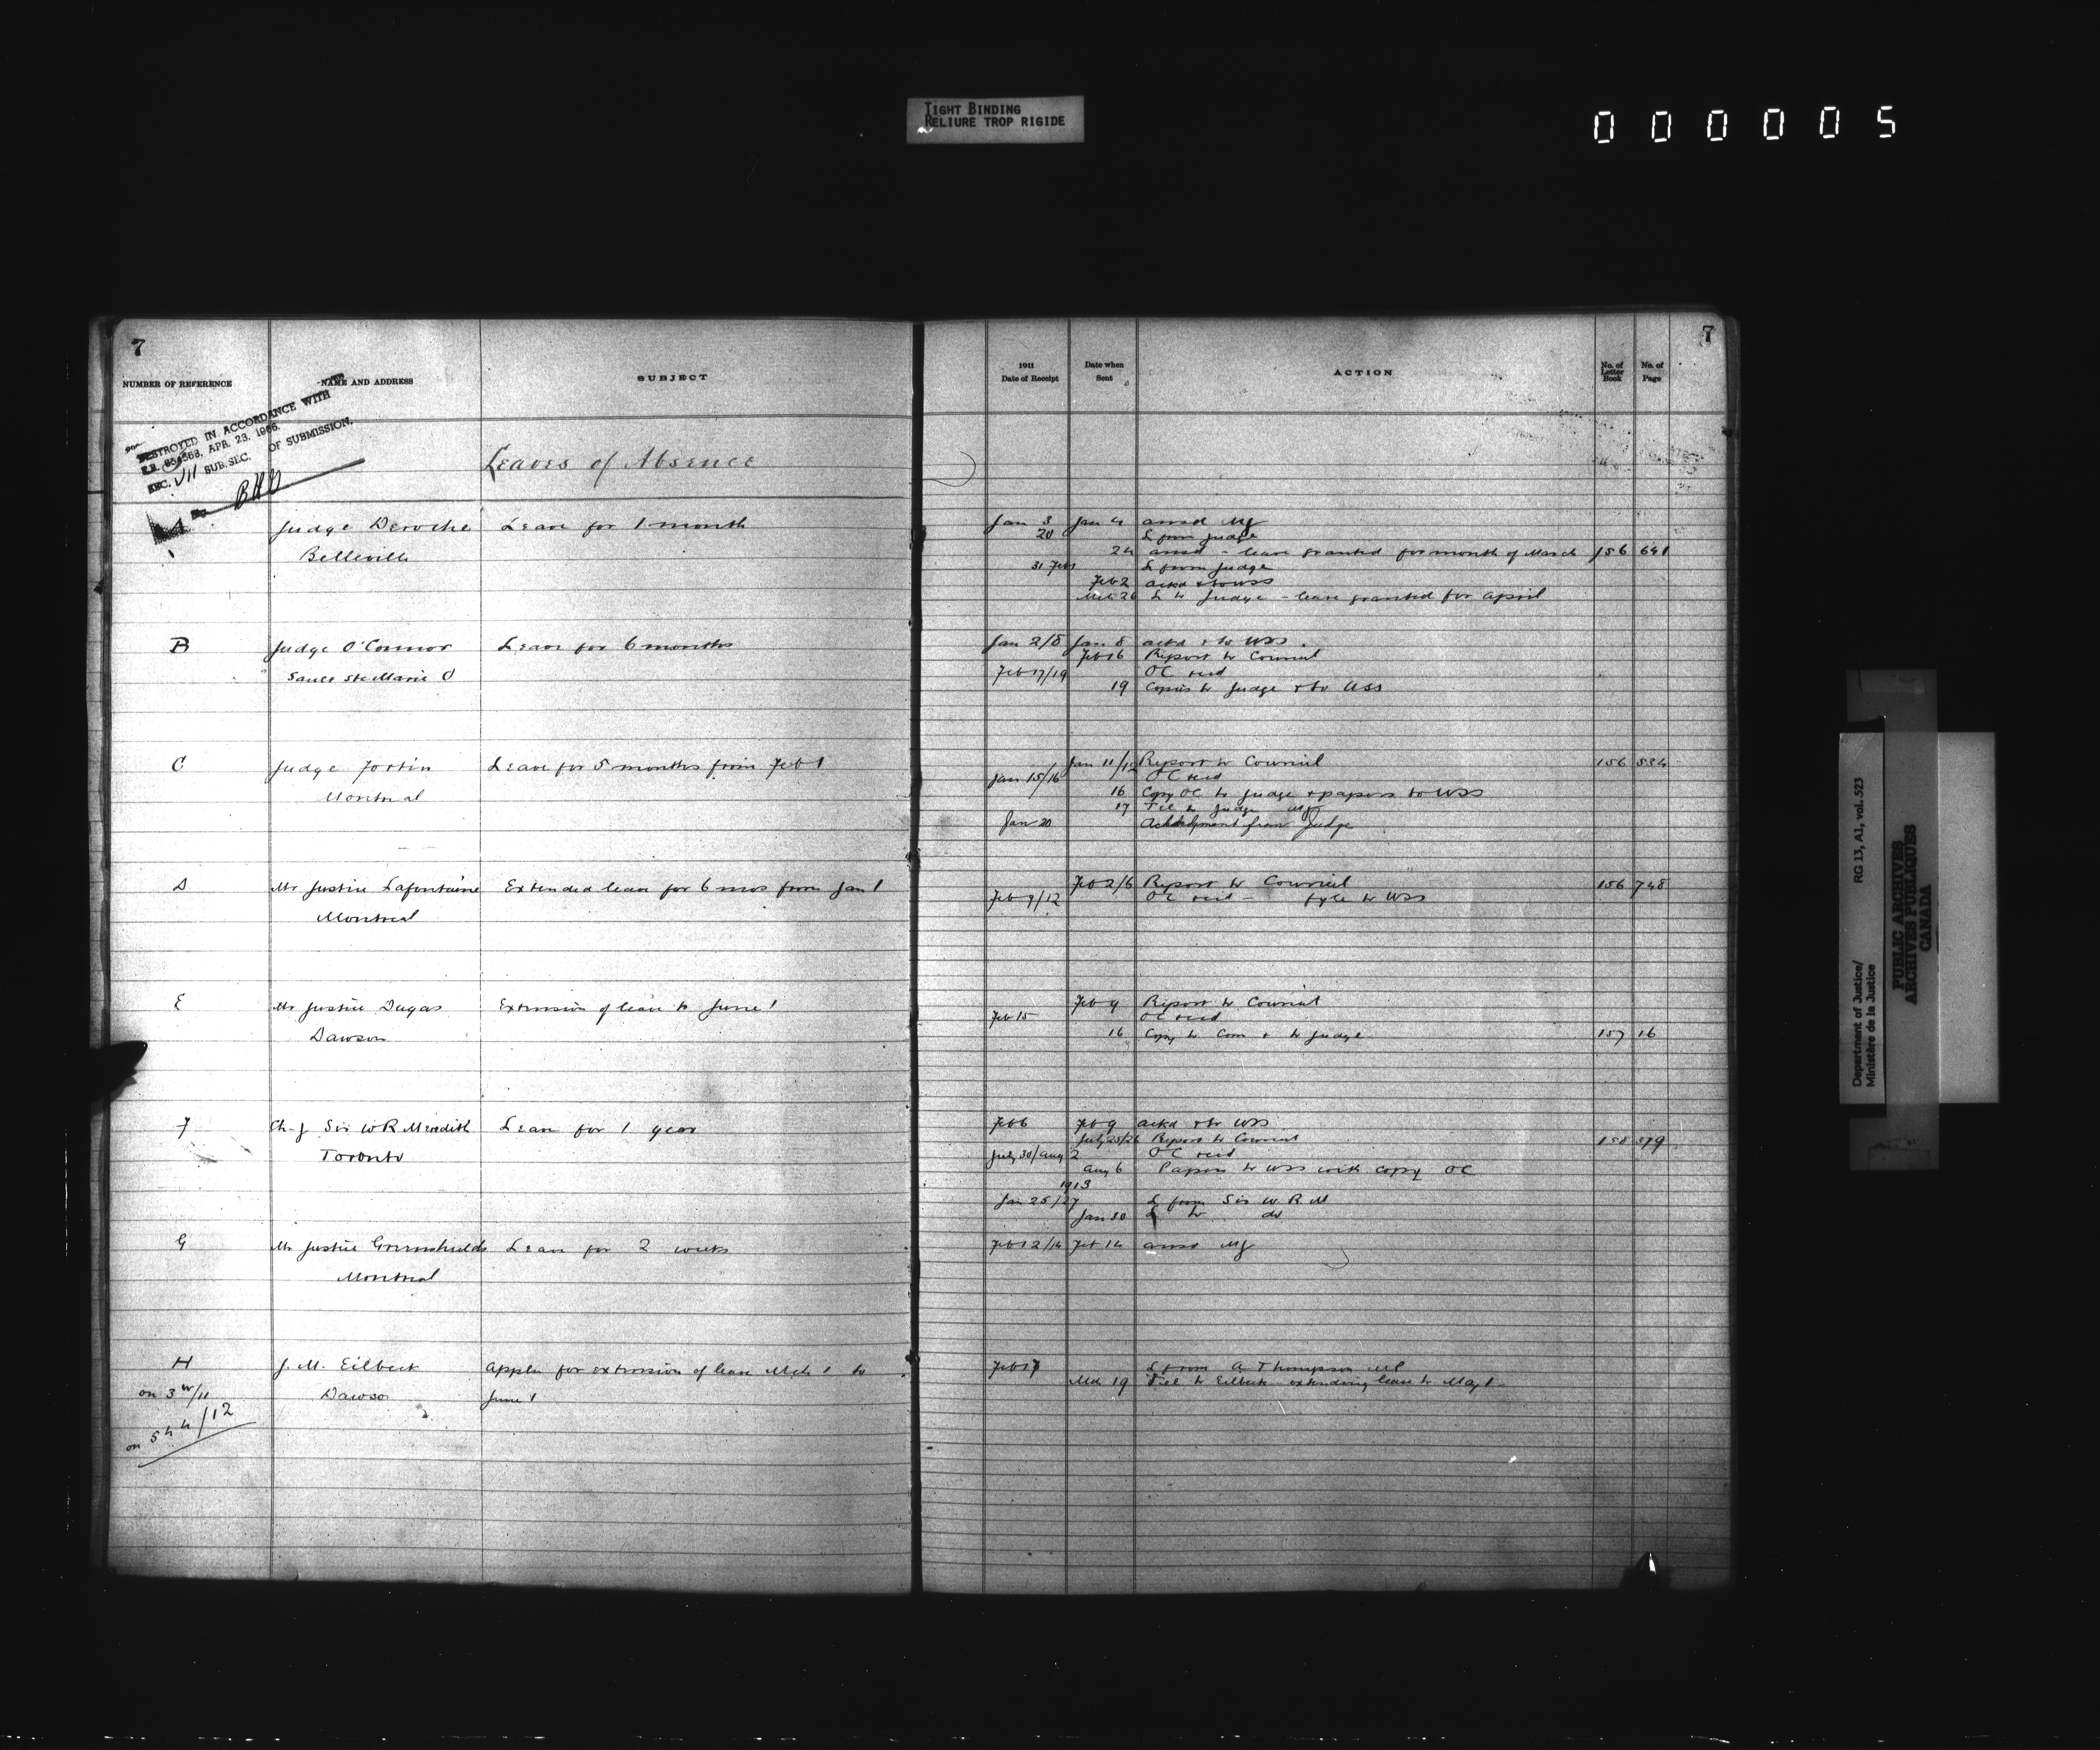 TIGHT BINDING
RELIURE TROP RIGIDE
000005
7
NUMBER OF REFERENCE
NAME AND ADDRESS
SUBJECT
DESTROYED IN ACCORDANCE WITH
APR. 23, 1966.
SEC. VII SUB.SEC. OF SUBMISSION.
Leaves of Absence
A Judge Deroche Leave for 1 month
Belleville
B Judge O'Connor Leave for 6 months
Sault Ste Marie O
C Judge Fortin Leave for 5 months from Feb 1
Montreal
D Mr Justice Lafontaine Extended leave for 6 mos from Jan 1
Montreal
E Mr Justice Dugas Extension of leave to June 1
Dawson
F Ch-J Sir W R Meredith Leave for 1 year
Toronto
G Mr Justice Greenshields Leave for 2 weeks
Montreal
H J. M. Eilbeck Appln for extension of leave Mch 1 to
on 3 /11 Dawson June 1
on 544/12
7
1911
Date of Receipt
Date when
Sent
ACTION
No. of
Letter
Book
No. of
Page
Jan 3 Jan 4 ansd MJ
20 L from Judge
24 ansd - leave granted for month of March 156 641
31 Feb 1 L from Judge
Feb 2 ackd & to USS
Mch 26 L to Judge - leave granted for April
Jan 2/8 Jan 8 ackd & to USS
Feb 16 Report to Council
Feb 17/19 OC recd
19 Copies to Judge & to USS
Jan 11/12 Report to Council 156 524
Jan 15/16 OC recd
16 Copy OC to Judge & papers to USS
17 Tel to Judge MJ
Jan 20 from Judge
Feb 2/6 Report to Council 156 748
Feb 9/12 OC recd - fyle to USS
Feb 9 Report to Council
Feb 15 OC recd
16 Copy to Com & to Judge 157 16
Feb 6 Feb 9 ackd & to USS
July 25/26 Report to Council 379
July 30/Aug 2 OC recd
Aug 6 Papers to USS with copy OC
1913
Jan 25/27 L from Sir W R M
Jan 30 L to do
Feb 12/14 Feb 14 ansd MJ
Feb 17 L from A Thompson MP
Mch 19 Tel to Eilbeck extending leave to May 1
Department of Justice/
Ministère de la Justice
RG 13, A1, vol. 523
PUBLIC ARCHIVES
ARCHIVES PUBLIQUES
CANADA